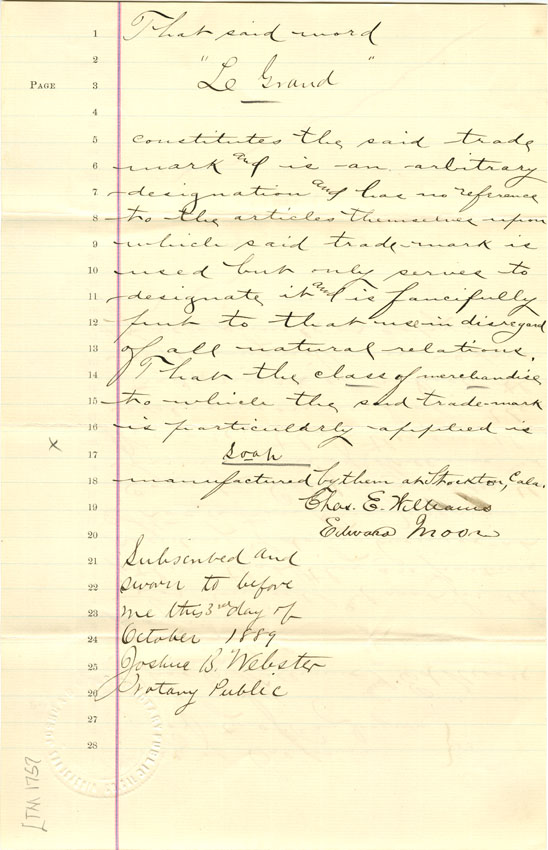 1 That said word
2
PAGE 3 "Le Grand"
4
5 constitutes the said trade
6 mark and is an arbitrary
7 designation and has no reference
8 to the articles themselves upon
9 which said trade-mark is
10 used but only serves to
11 designate it and is fancifully
12 put to that use in disregard
13 of all natural relations.
14 That the class of merchandise
15 to which the said trade-mark
16 is particularly applied is
x 17 Soap
18 manufactured by them at Stockton, Cala.
19 Chas. E. Williams
20 Edward Moon
21 Subscribed and
22 sworn to before
23 me this 3rd day of
24 October 1889
25 Joshua B. Webster
26 Notary Public
27
28
[TM 1757